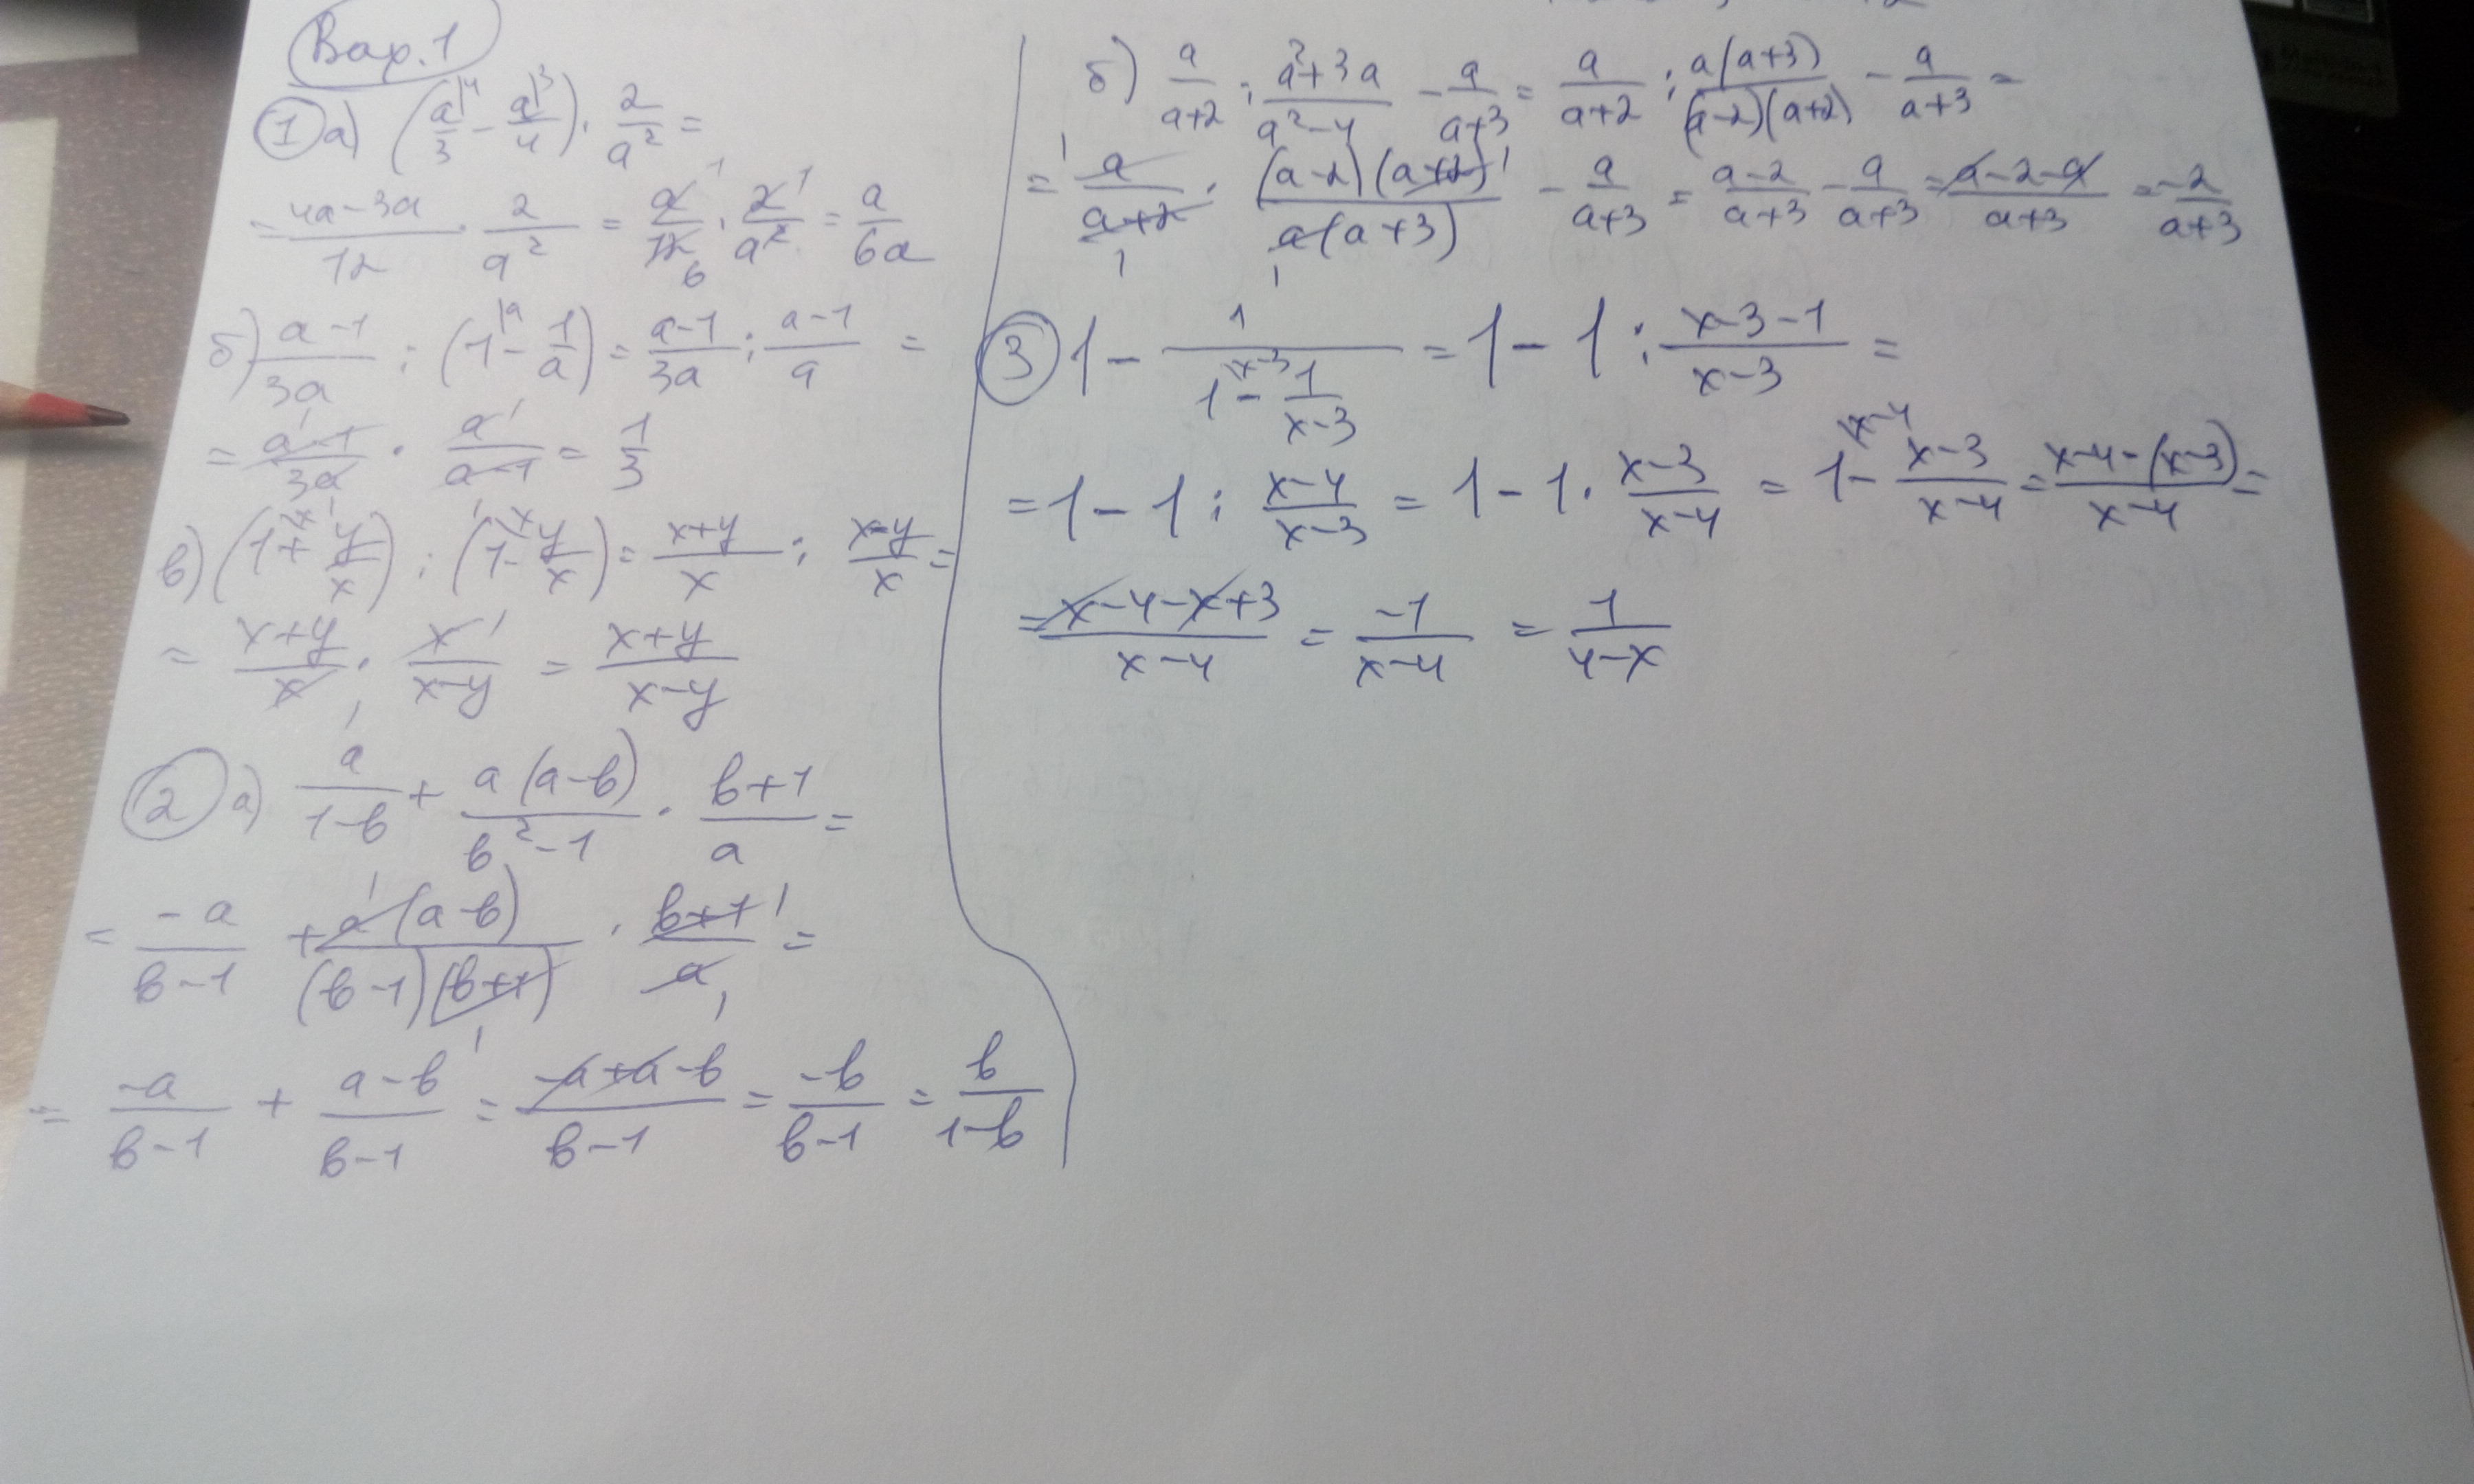 Вар. 1
① а) (a/3 |4 - a/4 |3) · 2/a² =
= (4a-3a)/12 · 2/a² = a/12 · 2/a² = a/6a
б) (a-1)/3a : (1 |a - 1/a) = (a-1)/3a : (a-1)/a =
= (a-1)/3a · a/(a-1) = 1/3
в) (1 |x + y/x) : (1 |x - y/x) = (x+y)/x : (x-y)/x =
= (x+y)/x · x/(x-y) = (x+y)/(x-y)
② а) a/(1-b) + a(a-b)/(b²-1) · (b+1)/a =
= -a/(b-1) + a(a-b)/((b-1)(b+1)) · (b+1)/a =
= -a/(b-1) + (a-b)/(b-1) = (-a+a-b)/(b-1) = -b/(b-1) = b/(1-b)
б) a/(a+2) : (a²+3a)/(a²-4) - a/(a+3) = a/(a+2) : a(a+3)/((a-2)(a+2)) - a/(a+3) =
= a/(a+2) · (a-2)(a+2)/(a(a+3)) - a/(a+3) = (a-2)/(a+3) - a/(a+3) = (a-2-a)/(a+3) = -2/(a+3)
③ 1 - 1/(1 |x-3 - 1/(x-3)) = 1 - 1 : (x-3-1)/(x-3) =
= 1 - 1 : (x-4)/(x-3) = 1 - 1 · (x-3)/(x-4) = 1 |x-4 - (x-3)/(x-4) = (x-4-(x-3))/(x-4) =
= (x-4-x+3)/(x-4) = -1/(x-4) = 1/(4-x)